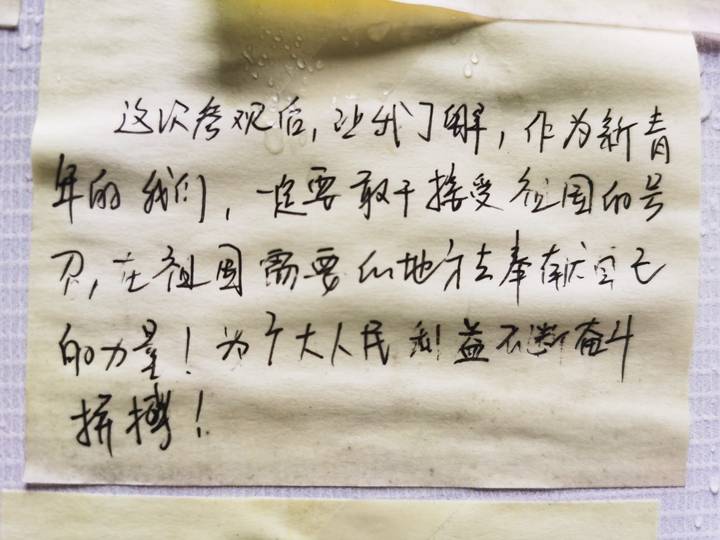 这次参观后,让我了解,作为新青
年的我们,一定要敢于接受祖国的号
召,在祖国需要的地方去奉献自己
的力量!为广大人民利益不断奋斗
拼搏!